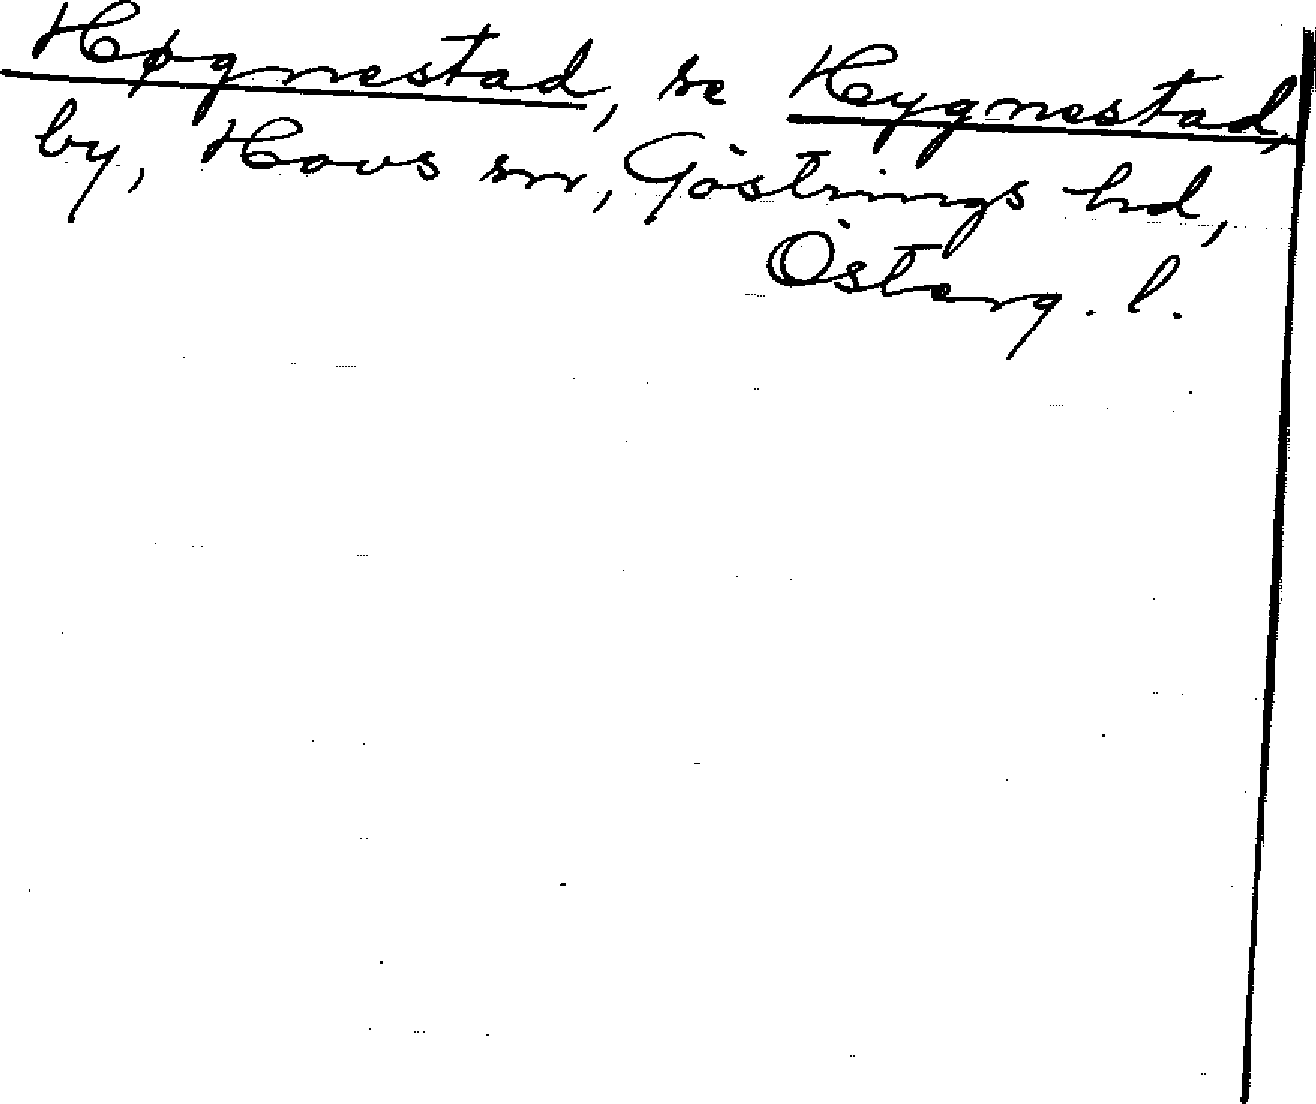 Høgnestad, se Hygnestad,
by, Hovs sn, Göstrings hd,
Österg. l.